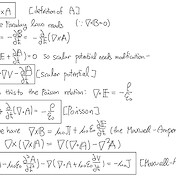 ∇×A] [definition of A]
Faraday law reads (∵ ∇·B=0)
= -∂B/∂t = -∂/∂t(∇×A)
E + ∂A/∂t) = 0. so scalar potential needs modification -
-∇V - ∂A/∂t [scalar potential]
this to the Poisson relation: ∇·E = -ρ/ε₀
+ ∂/∂t(∇·A) = -ρ/ε₀ [Poisson]
we have ∇×B = μ₀J + μ₀ε₀ ∂E/∂t (the Maxwell-Amper
∇×(∇×A) = ∇(∇·A) - ∇²A)
A - μ₀ε₀ ∂²A/∂t²) - ∇(∇·A + μ₀ε₀ ∂V/∂t) = -μ₀J [Maxwell-A